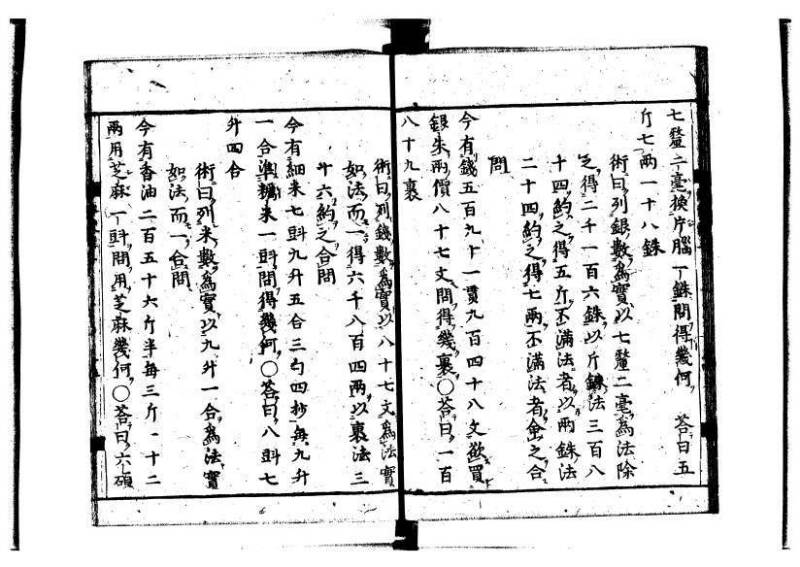 七釐二毫換片腦一銖問得幾何　荅曰五
斤七兩一十八銖
術曰列銀數爲實以七釐二毫爲法除
之得二千一百六銖以斤銖法三百八
十四約之得五斤不滿法者以兩銖法
二十四約之得七兩不滿法者命之合
問
今有錢五百九十一貫九百四十八文欲買
銀朱兩價八十七文問得幾裹〇荅曰一百
八十九裹
術曰列錢數爲實以八十七文爲法實
如法而一得六千八百四兩以裹法三
十六約之合問
今有細米七㪷九升五合三勺四抄每九升
一合準糙米一㪷問得幾何〇荅曰八㪷七
升四合
術曰列米數爲實以九升一合爲法實
如法而一合問
今有香油二百五十六斤半每三斤一十二
兩用芝麻一㪷問用芝麻幾何〇荅曰六碩